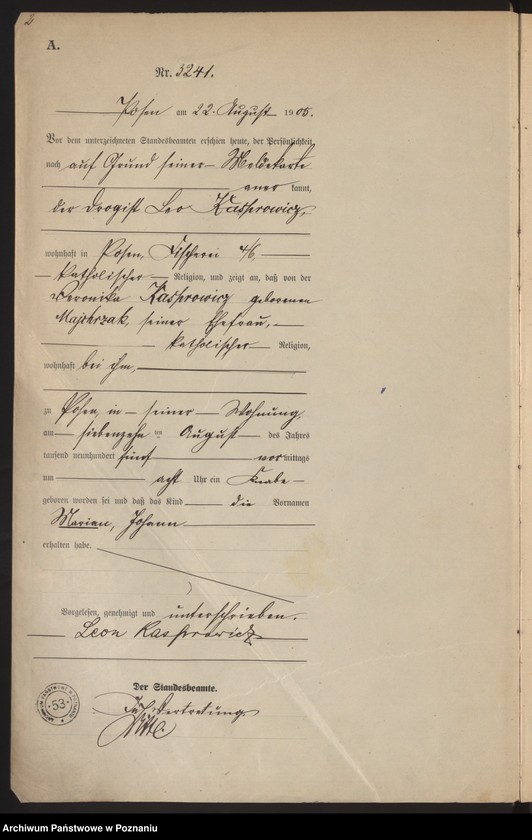 2
A.
Nr. 3241.
Posen am 22. August 1905.
Vor dem unterzeichneten Standesbeamten erschien heute, der Persönlichkeit
nach auf Grund seiner Meldekarte
aner kannt,
der Drogist Leo Kasprowicz,
wohnhaft in Posen, Fischerei 46,
katholischer Religion, und zeigt an, daß von der
Veronika Kasprowicz geborenen
Majchrzak, seiner Ehefrau,
katholischer Religion,
wohnhaft bei ihm,
zu Posen, in seiner Wohnung,
am siebenzehnten August des Jahres
tausend neunhundert fünf vormittags
um acht Uhr ein Knabe
geboren worden sei und daß das Kind die Vornamen
Marian, Johann
erhalten habe.
Vorgelesen, genehmigt und unterschrieben.
Leon Kasprowicz
Der Standesbeamte.
In Vertretung.
ARCHIWUM PAŃSTWOWE W POZNANIU
53
Archiwum Państwowe w Poznaniu